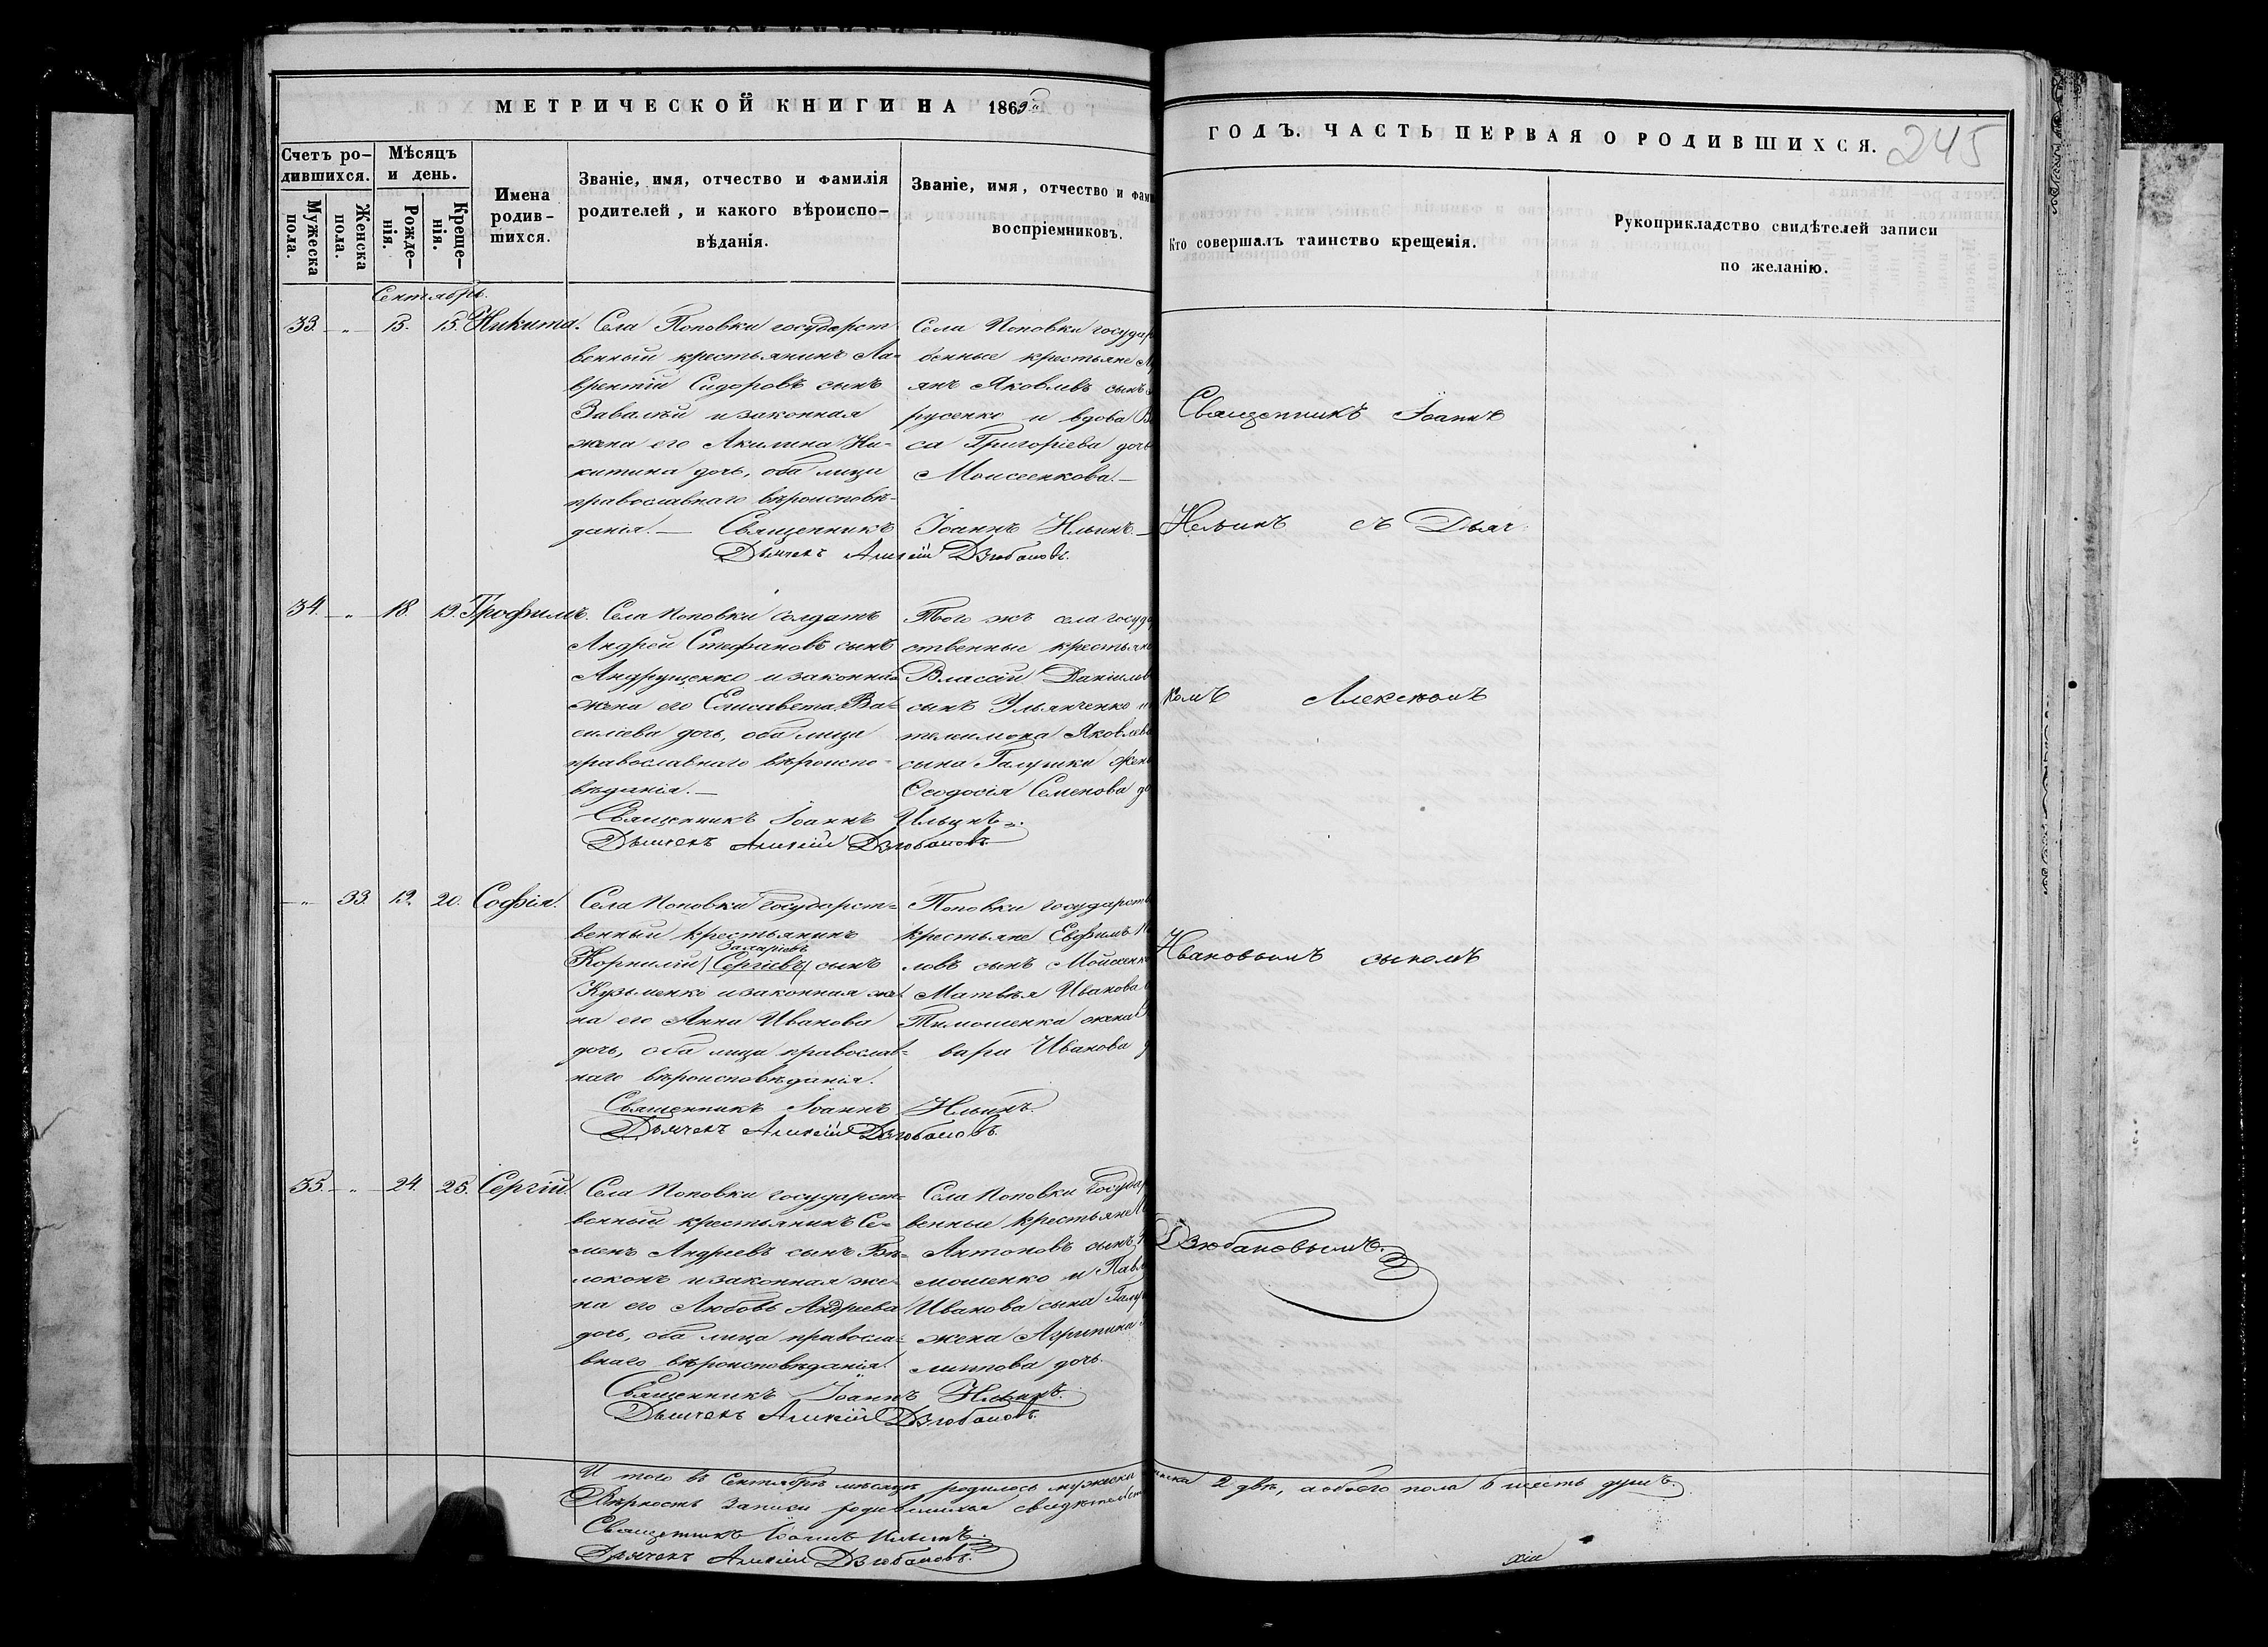 МЕТРИЧЕСКОЙ КНИГИ НА 1869
ГОДЪ. ЧАСТЬ ПЕРВАЯ О РОДИВШИХСЯ.
245
Счетъ ро-
дившихся.
Мужеска пола.
Женска пола.
Мѣсяцъ
и день.
Рожде-
нія.
Креще-
нія.
Имена
родив-
шихся.
Званіе, имя, отчество и фамилія
родителей, и какого вѣроиспо-
вѣданія.
Званіе, имя, отчество и
воспріемниковъ.
Кто совершалъ таинство крещенія.
Рукоприкладство свидѣтелей записи
по желанію.
Сентябрь.
33. " 15. 15. Никита.
Села Поповки государст
венный крестьянинъ Ла-
врентій Сидоровъ сынъ
Завалѣй и законная
жена его Акилина Ни-
китина дочь, оба лица
православнаго вѣроисповѣ-
данія. —
Села Поповки государ
венные крестьяне
янъ Яковлевъ сынъ
русенко и вдова
са Григоріева дочь
Моисеенкова. —
Священникъ Іоаннъ Ильинъ. —
Дьячекъ Алексій Дзюбановъ.
34. " 18. 19. Трофимъ.
Села Поповки солдатъ
Андрей Стефановъ сынъ
Андрущенко и законная
жена его Елисавета Ва-
силіева дочь, оба лица
православнаго вѣроиспо-
вѣданія. —
Того жъ села госуда
ственные крестьяне
Власій Даніиловъ
сынъ Ульянченко и
Яковлева
сына Галушки жена
Ѳеодосія Семенова
Священникъ Іоаннъ Ильинъ.
Дьячекъ Алексій Дзюбановъ.
" 33. 19. 20. Софія.
Села Поповки государст-
венный крестьянинъ
Захаріевъ
Корнилій (Сергіевъ) сынъ
Кузьменко и законная же-
на его Анна Иванова
дочь, оба лица православ-
наго вѣроисповѣданія.
Поповки государств
крестьяне Евфимъ
ловъ сынъ Мойсеенко
Матвѣя Иванова
Тимошенка жена
вара Иванова
Священникъ Іоаннъ Ильинъ.
Дьячекъ Алексій Дзюбановъ.
35. " 24. 25. Сергій.
Села Поповки государст-
венный крестьянинъ Се-
менъ Андреевъ сынъ Бѣ-
локонъ и законная же-
на его Любовь Андреева
дочь, оба лица правосла-
внаго вѣроисповѣданія.
Села Поповки государ
венные крестьяне
Антоновъ сынъ
мошенко и Павла
Иванова сына Галу
жена Агрипина
литова дочь.
Священникъ Іоаннъ Ильинъ.
Дьячекъ Алексій Дзюбановъ.
Священникъ Іоаннъ
Ильинъ съ Дьяч
комъ Алексѣемъ
Ивановымъ сыномъ
Дзюбановымъ.
И того въ Сентябрѣ мѣсяцѣ родилось мужеска
2 двѣ, а обоего пола 6 шесть душъ.
Вѣрность записи родившихся свидѣтельст
Священникъ Іоаннъ Ильинъ.
Дьячекъ Алексій Дзюбановъ.